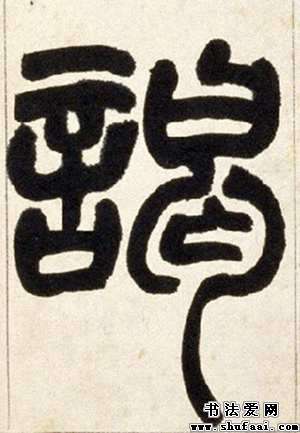 謁
书法爱网
www.shufaai.com